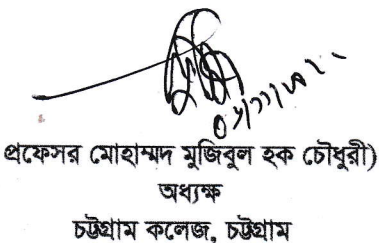 প্রফেসর মোহাম্মদ মুজিবুল হক চৌধুরী)
অধ্যক্ষ
চট্টগ্রাম কলেজ, চট্টগ্রাম